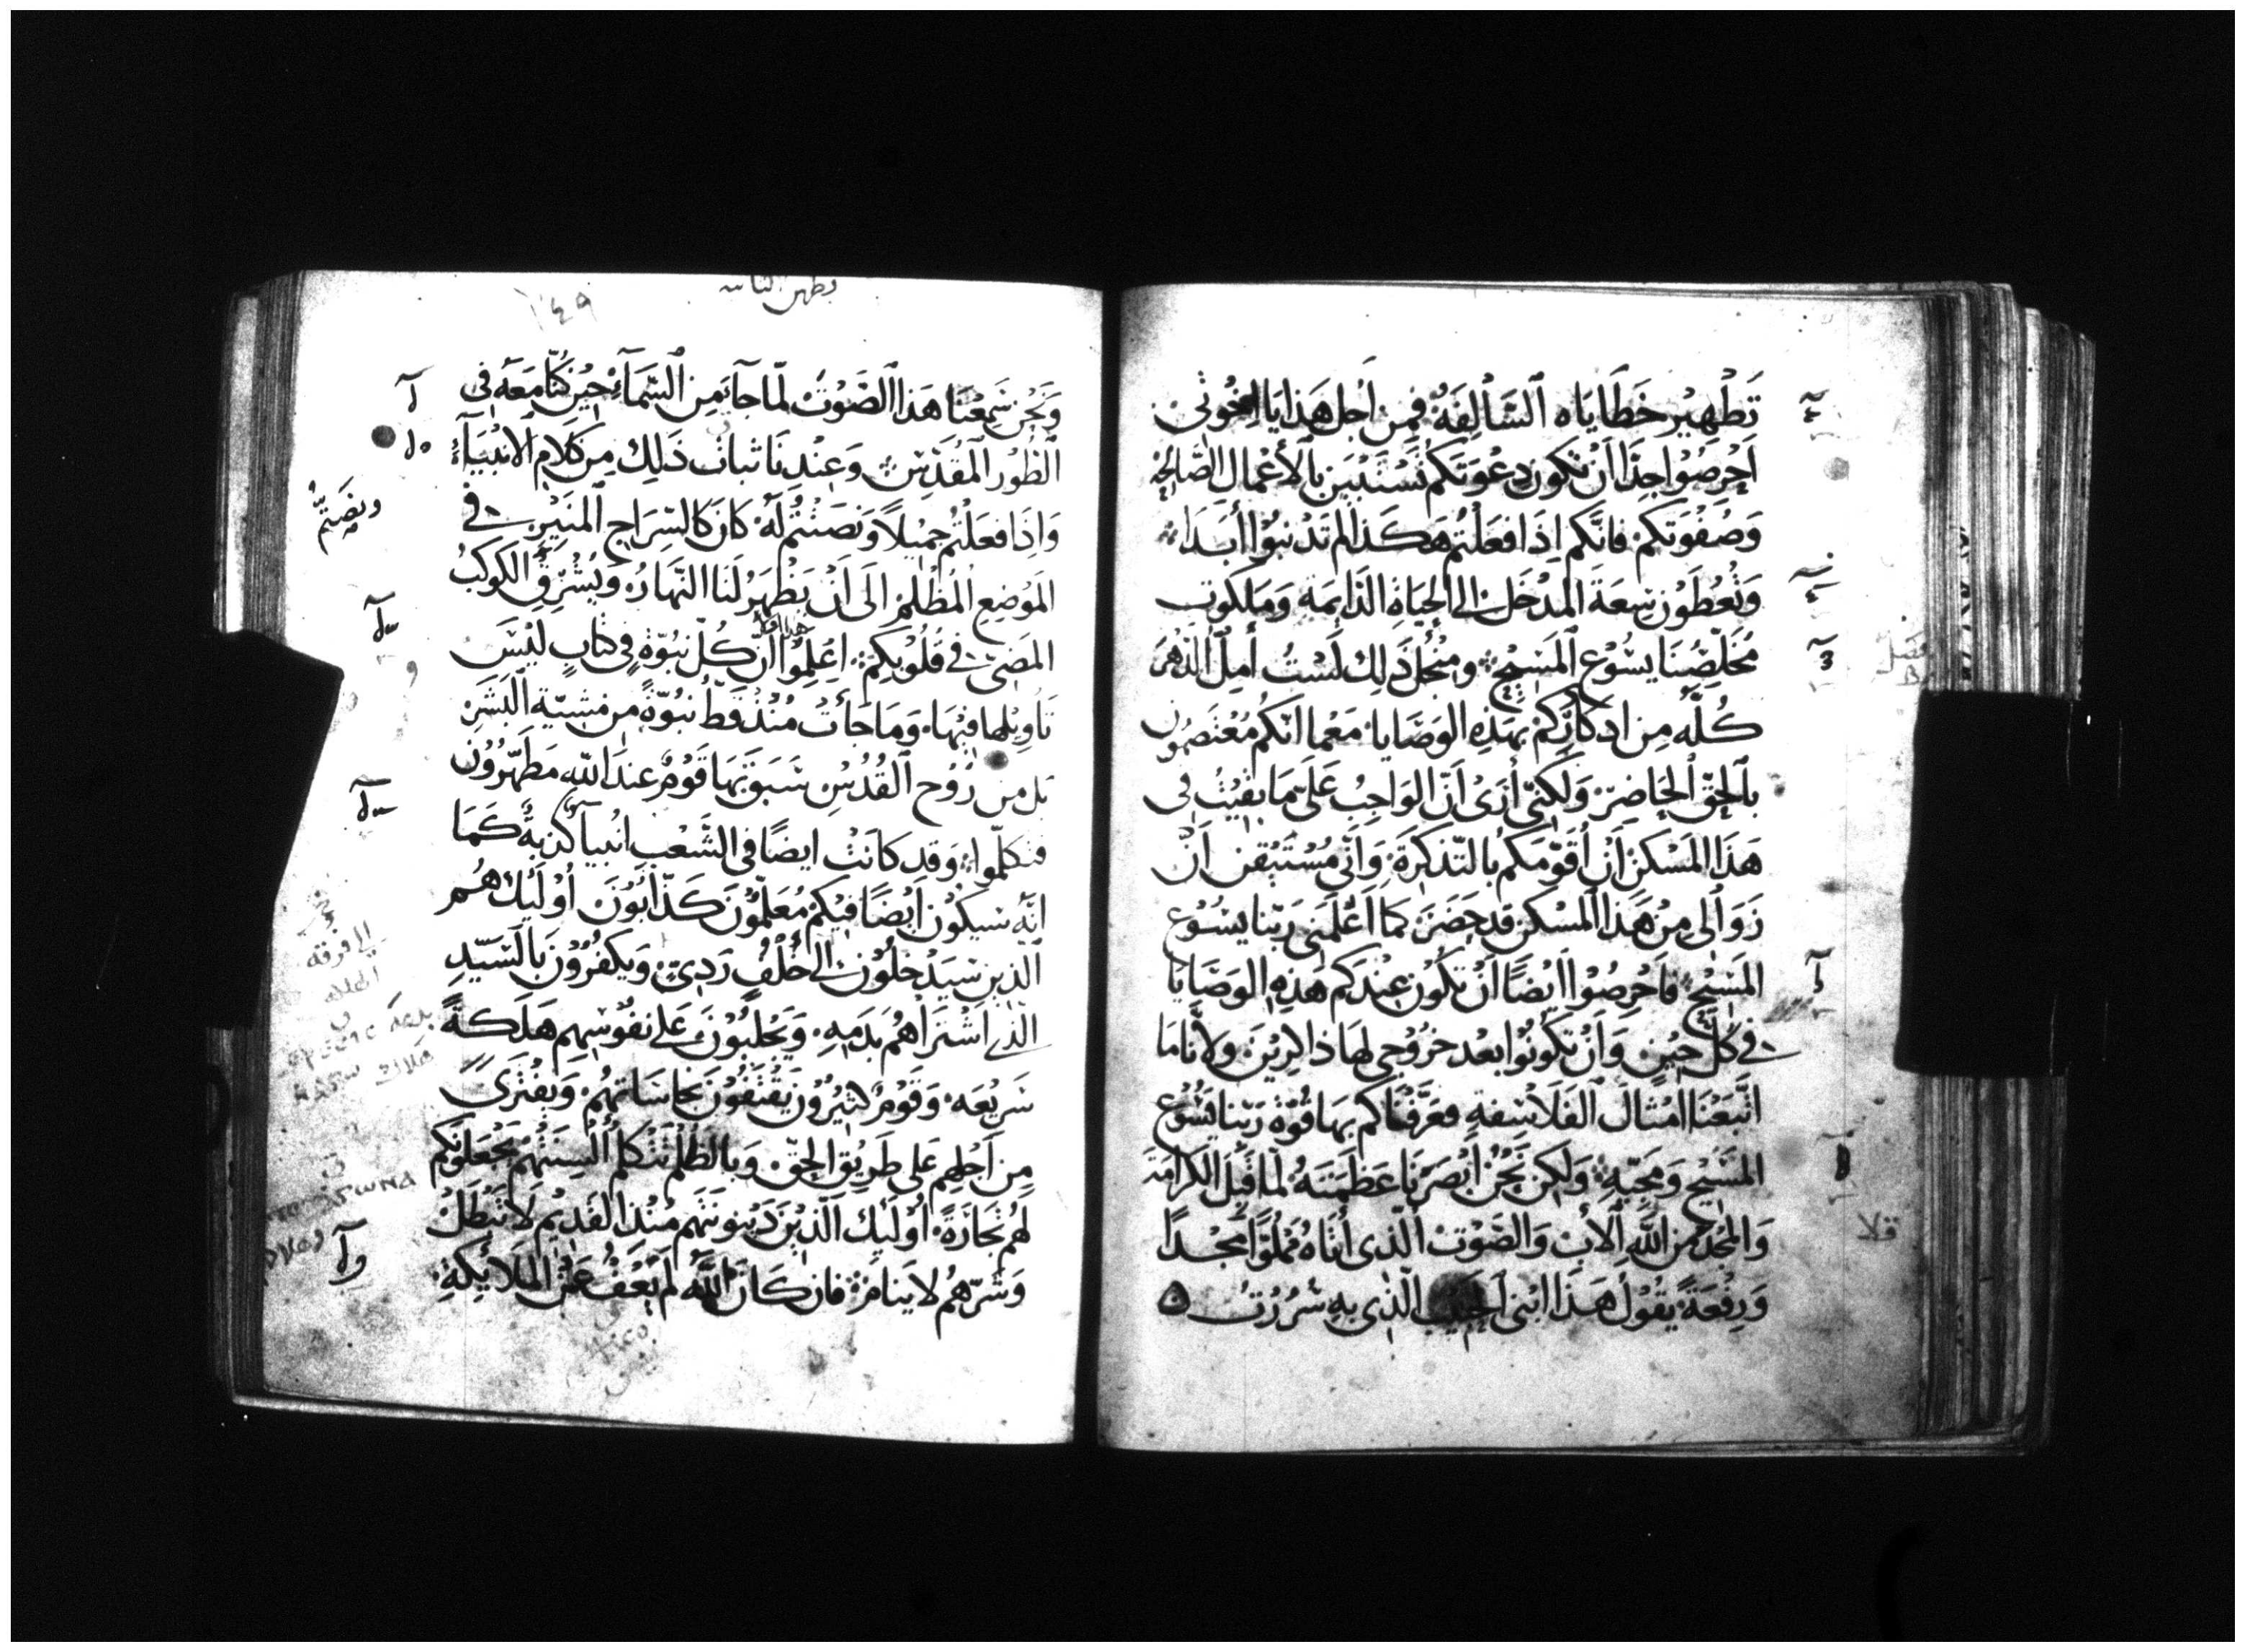 تَطْهِيْر خَطَايَاه السَّالِفَةُ فَمِن اَجْل هَذا يَا اِخْوَتى
اَحْرِصُوْا جِدًّا اَنْ تَكُون دِعْوَتَكم تَسْتَبِيْن بالأعْمال الصَّالِحَه
وَصُفْوَتكم فانّكم اِذَا فعَلتُم هَكَذا لم تَدْنبُوْا أبَدًا
وَتُعْطَوْن سِعَة المَدْخَل الى الحَيَاةِ الدَّايمَةِ وَمَلكوت
مُخَلِّصِنَا يسُوْع المَسِيْح ومنْ اجل ذَلِك لَسْتُ أمِلّ الدَّهرَ
كُلَّه مِن ادكَارِكُمْ بهَذِه الوَصَايَا مَعْما انّكُم مُعْتَصِمُون
بالحَقّ الحَاضِرْ وَلكنّى أرَىْ اَنّ الوَاجِبُ عَلَىَّ مَا بقيْتُ فى
هَذَا المَسْكنْ اَنْ أُقَوّمَكُم بالتّذكِرَةِ وَاَنّى مُسْتَيْقن اَنَّ
زَوَالى مِنْ هَذَا المسْكن قد حَضَرَ كمَا اَعْلَمَنى رَبّنا يسُوْع
المَسِيْح فاَحْرِصُوْا اَيْضًا اَنْ تَكُوْن عِنْدكم هَذِهِ الوَصَايَا
فى كُلّ حِيْنٍ وَاَنْ تكُونُوْا بعْد خرُوْجى لهَا ذَاكِرِيْنَ ولأنَّا مَا
اتَّبَعْنَا امْثالَ الفَلاَسِفَةِ فعَرَّفْنَاكم بهَا قُوّة رَبّنا يسُوْع
المسِيْح وَمَجِيّهِ وَلكِن نَحْنُ أبْصَرْنَا عَظمَتَهُ لمّا قَبِلَ الكَرَامَة
وَالمَجْدَ مِن اللَّهِ الأبْ وَالصَّوْت الّذى أتَاهُ مَمْلُوًّا مَجْدًا
وَرِفْعَةً يقُوْل هَذا ابْنى الحَبيْب الّذى بهِ سُرِرْت ۵
١٤٩
وَنَحْن سَمِعْنا هَذا الصَّوْت لمّا جآءَ مِن السَّمآءْ حِيْن كنّا مَعَه فى
الطُّوْر المقَدّس وَعِنْدنَا ثبات ذَلِك مِن كَلاَم الانبْيَآءْ
وَاِذَا فعَلتُمْ جَمِيْلاً وَنصَتُّمْ لَهُ كانَ كالسّرَاجِ المُنِيْرِ فى
المَوْضِع المُظْلم الَى اَنْ يَظْهَرَ لَنا النّهَارُ وَيُشْرقُ الكوكبُ
المُضِىّ فى قلُوْبكمْ اعْلَمُوْا هذا انّ كُلّ نبُوّة فى كتابٍ لَيْسَ
تَاوِيْلها فيْهَا وَمَا جَأتْ مُنْذ قَطّ نبُوّةٌ مِن مَشِيّة البَشَرِ
بَل مِن رُوْح القُدُسِ سَبَقَ بَهَا قَوْمٌ عندَ اللّه مَطَهّرُوْن
فتكلّموا وَقد كانتْ ايضًا فى الشَّعْب انْبيَآ كذبَةٌ كَمَا
انّه سَيكُوْن اَيْضًا فيْكمْ مُعَلّموْن كَذّابُوْنَ أوْلَيِك هُم
الّذِين سَيَدْخلُوْن الى خُلْفٍ رَدِىّ وَيكفُرُوْن بالسّيّدِ
الّذى اَشْتَرَاهُمْ بدَمِهِ وَيَجْلبُوْنَ عَلى نفُوْسِهِم هَلَكةً
سَرِيْعَه وَقَوْمٌ كثيْرُوْن يَقْتفُوْنَ نجَاسَاتهُم وَيفْتَرَى
مِن اَجْلِهِم عَلى طَرِيْق الحَقّ وَبالظّلْم تَتَكلّم ألْسِنَتُهُمْ يَجْعَلُوْنكُم
لهُمْ تجَارَةً أُوْلَيِك الّذِيْنَ دَيْنُونَتهُم مُنْذ القَدِيْم لاَ تَبْطَلُ
وَشَرّهُم لا يَنامُ فان كَانَ اللَّه لَم يَعْفُ عَن المَلاَيكَةِ